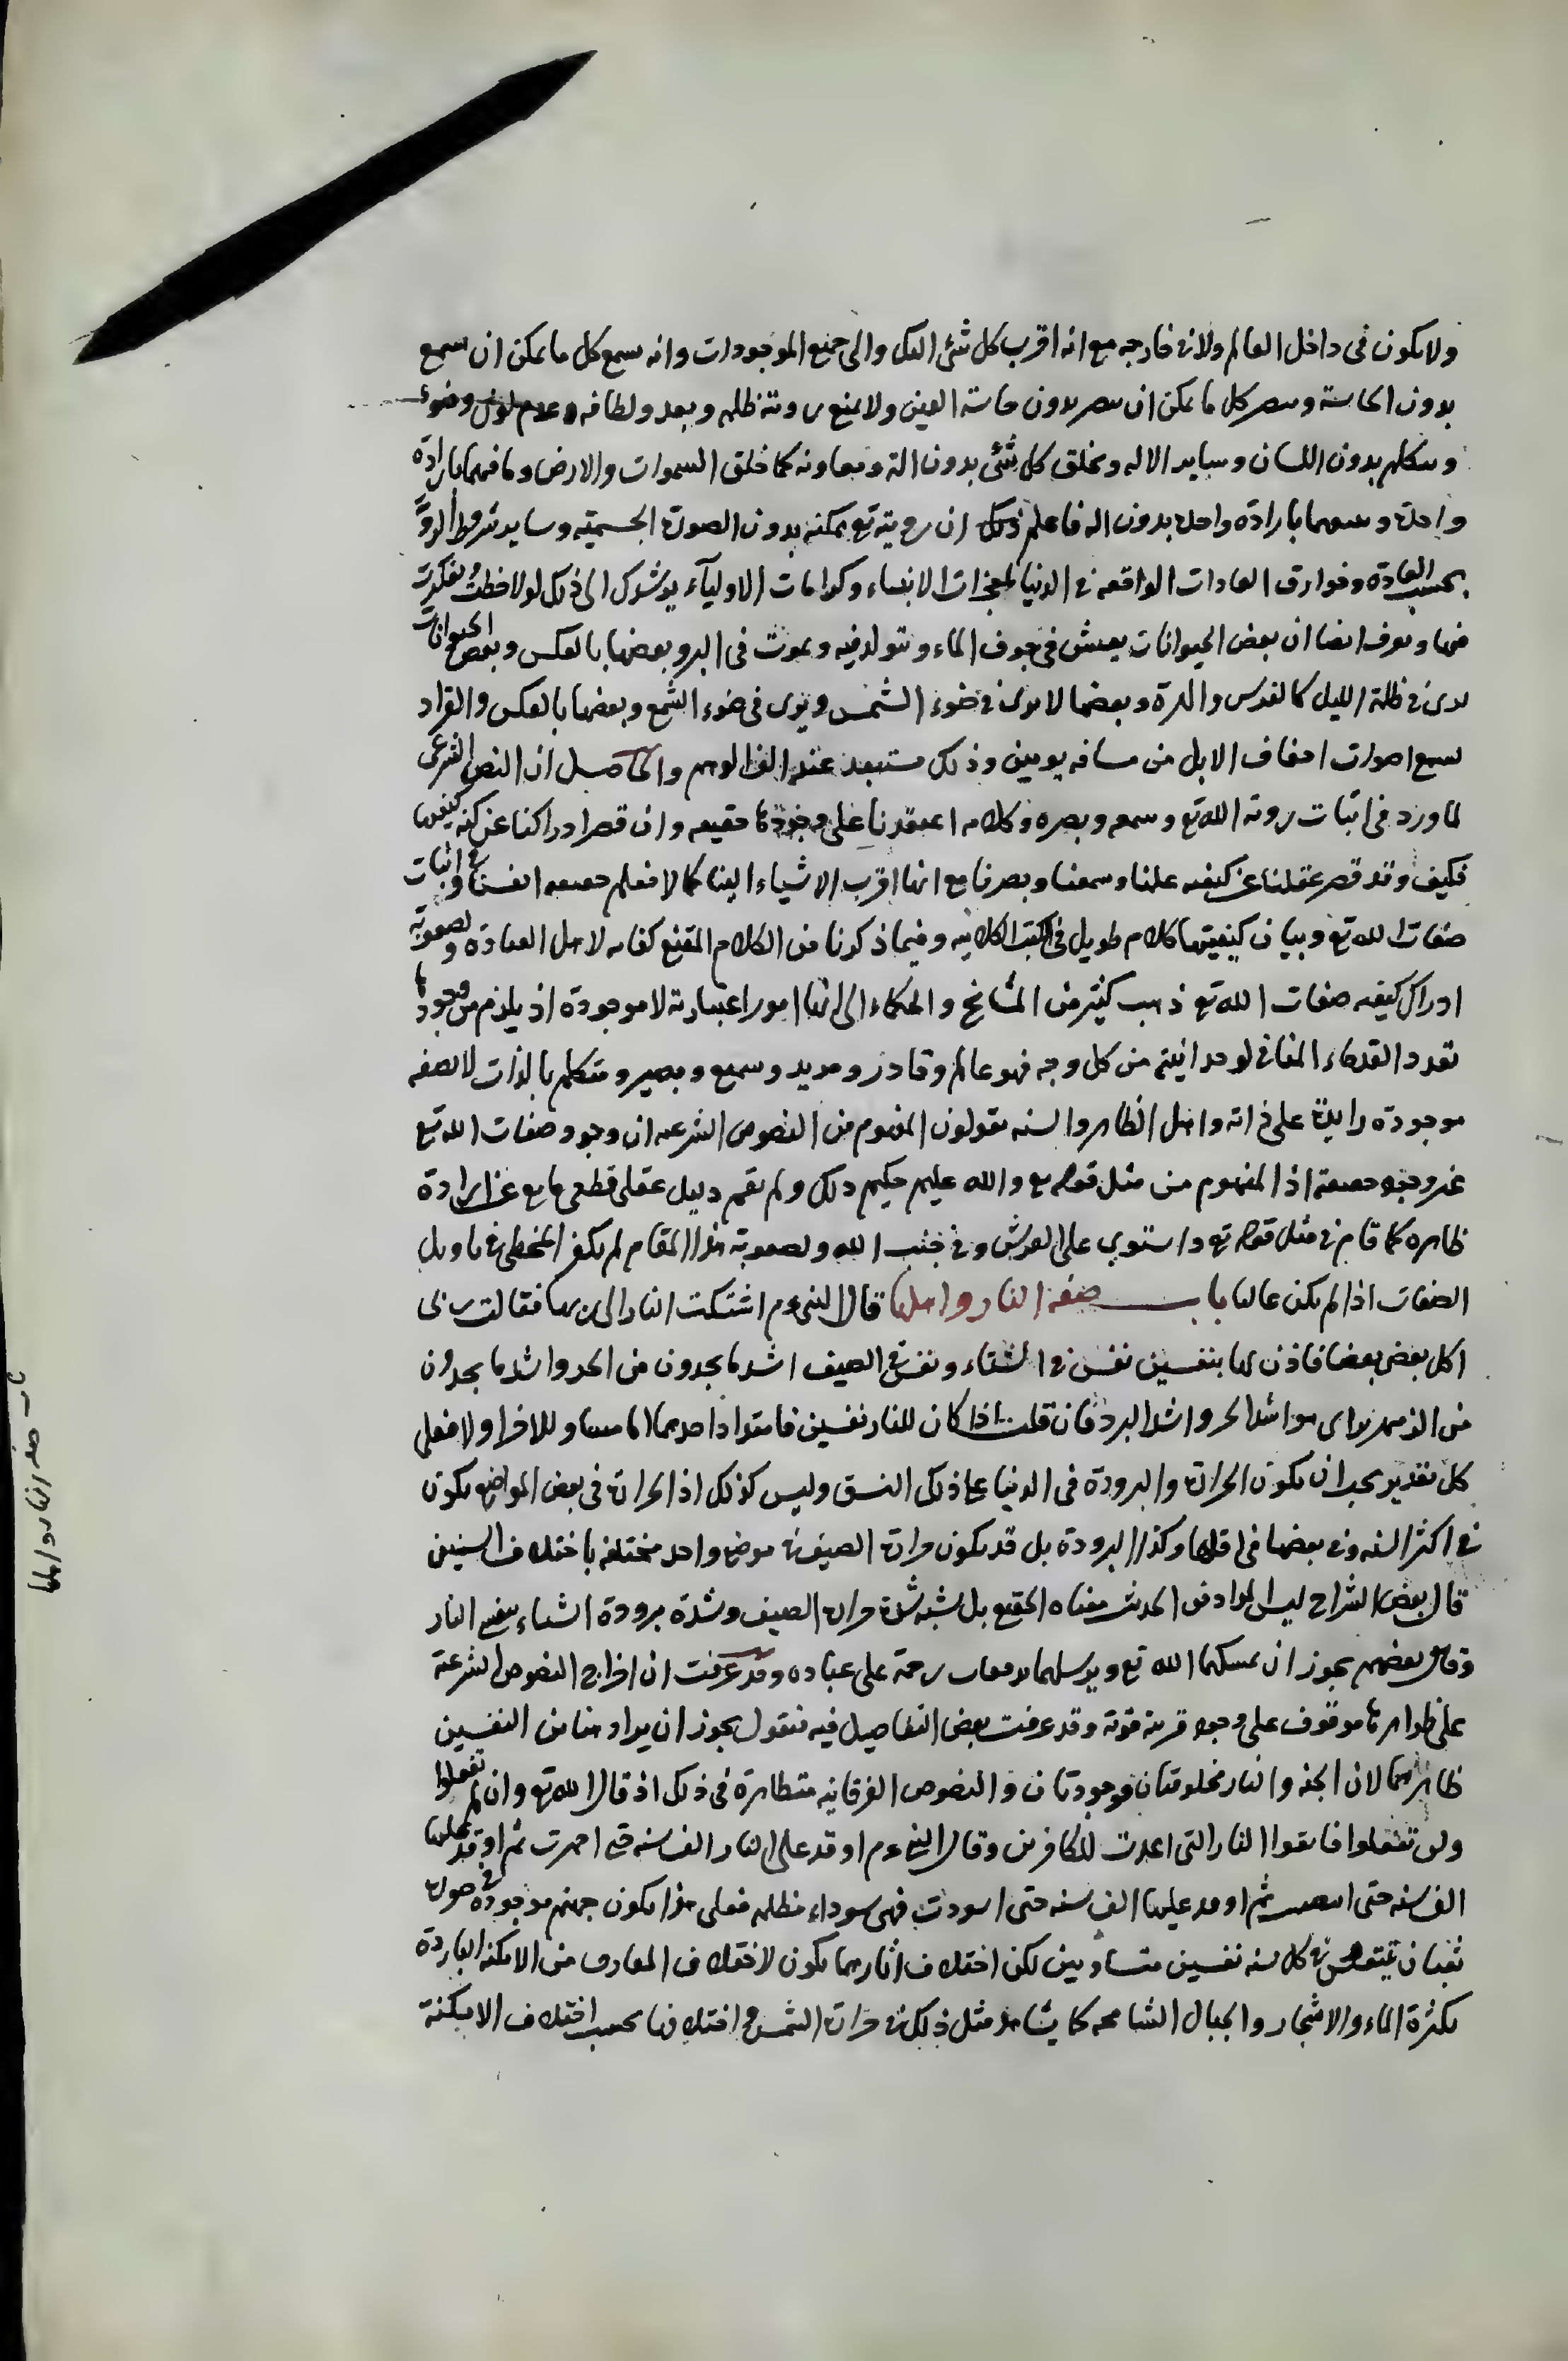 ولا يكون في داخل العالم ولا في خارجه مع انه اقرب كل شئ اليك والى جميع الموجودات وانه يسمع كل ما يمكن ان يسمع
بدون الحاسة ويبصر كل ما يمكن ان يبصر بدون حاسة العين ولا يمنع رويته ظلمة وبعد ولطافة وعدم لون وضوء
ويتكلم بدون اللسان وساير الالة ويخلق كل شئ بدون الة ومعاونة كما خلق السموات والارض وما فيهما بارادة
واحدة بارادة واحدة بدون الة فاعلم ذلك ان رويته تع ممكنة بدون الصورة الجسمية وساير شروط الروية
بحسب العادة وخوارق العادات الواقعة في الدنيا لمعجزات الانبياء وكرامات الاولياء يرشدك الى ذلك لو لاحظت وتفكرت
فيها وتعرف ايضا ان بعض الحيوانات يعيش في جوف الماء ويتولد فيه ويموت في البر وبعضها بالعكس وبعض الحيوانات
يرى في ظلمة الليل كالفرس والهرة وبعضها لا يرى في ضوء الشمس ويرى في ضوء الشمع وبعضها بالعكس والقراد
يسمع اصوات اخفاف الابل من مسافة يومين وذلك مستبعد عند الوهم والحاصل ان النص الشرعي
لما ورد في اثبات روية الله تع وسمعه وبصره وكلامه اعتقدنا على وجودها حقيقة وان قصر ادراكنا عن كنه كيفيتها
فكيف وقد قصر عقلنا عن كيفية علمنا وسمعنا وبصرنا مع انها اقرب الاشياء الينا كما لا نعلم حقيقة انفسنا وفي اثبات
صفات الله تع وبيان كيفيتها كلام طويل في الكتب الكلامية وفيما ذكرنا من الكلام المقنع كفاية لاهل العبادة ولصعوبة
ادراك كيفية صفات الله تع ذهب كثير من المشايخ والحكماء الى انها امور اعتبارية لا موجودة اذ يلزم من وجودها
تعدد القدماء المنافي لوحدانيته من كل وجه فهو عالم وقادر ومريد وسميع وبصير ومتكلم بالذات لا بصفة
موجودة زايدة على ذاته واهل الظاهر والسنة يقولون المفهوم من النصوص الشرعية ان وجود صفات الله تع
غير وجوده حقيقة اذ المفهوم من مثل قوله تع والله عليم حكيم ذلك ولم يقم دليل عقلي قطعي مانع عن ارادة
ظاهره كما قام في مثل قوله تع واستوى على العرش وفي جنب الله ولصعوبة هذا المقام لم يكفر المخطى في تاويل
الصفات اذا لم يكن عالما باب صفة النار واهلها قال النبي عم اشتكت النار الى ربها فقالت ربي
اكل بعضي بعضا فاذن لها بنفسين نفس في الشتاء ونفس في الصيف اشد ما يجدون من الحر واشد ما يجدون
من الزمهرير اى هو اشد الحر واشد البرد فان قلت اذا كان للنار نفسين فامتداد احدهما اما مساو للاخر اولا فعلى
كل تقدير يجب ان يكون الحرارة والبرودة في الدنيا على ذلك النسق وليس كذلك اذ الحرارة في بعض المواضع يكون
في اكثر السنة وفي بعضها في اقلها وكذا البرودة بل قد يكون حرارة الصيف في موضع واحد مختلفة باختلاف السنين
قال بعض الشراح ليس المراد من الحديث معناه الحقيقي بل شبه شدة حرارة الصيف وشدة برودة الشتاء بنفسي النار
وقال بعضهم يجوز ان يمسكهما الله تع ويرسلهما رحمة على عباده وقد عرفت ان اخراج النصوص الشرعية
على ظواهرها موقوف على وجود قرينة قوية وقد عرفت بعض التفاصيل فيه فنقول يجوز ان يراد هنا من النفسين
ظاهرهما لان الجنة والنار مخلوقتان موجودتان والنصوص الفرقانية متظاهرة في ذلك اذ قال الله تع وان لم تفعلوا
ولن تفعلوا فاتقوا النار التى اعدت للكافرين وقال النبي عم اوقد على النار الف سنة حتى احمرت ثم اوقد عليها
الف سنة حتى ابيضت ثم اوقد عليها الف سنة حتى اسودت فهي سوداء مظلمة فعلى هذا يكون جهنم موجودة في صورة
ثعبان يتنفس في كل سنة نفسين متساويين لكن اختلاف اثارهما يكون لاختلاف المعارف من الامكنة الباردة
بكثرة الماء والاشجار والجبال الشامخة كما يشاهد مثل ذلك في حرارة الشمس واختلافها بحسب اختلاف الامكنة
باب صفة النار واهلها